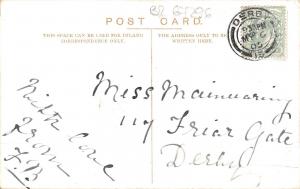 POST CARD.
THIS SPACE CAN BE USED FOR INLAND
CORRESPONDENCE ONLY.
WRITTEN HERE.
DERBY
Miss Mainwaring
117 Friar Gate
Derby
With Love
From